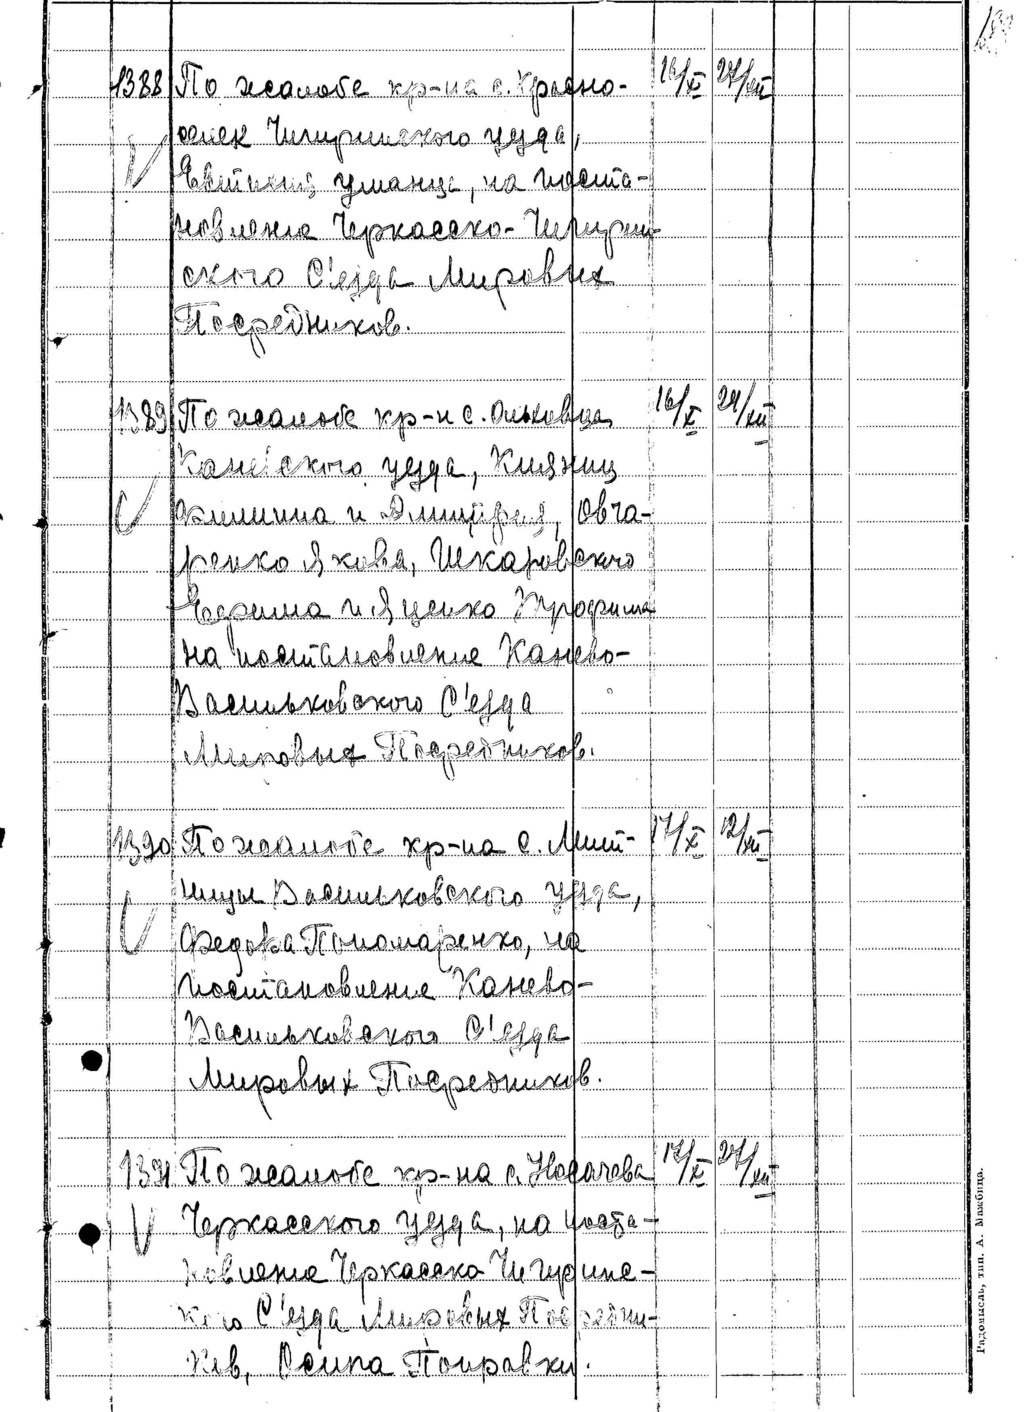 1388 По жалобе кр-на с. Красно- 16/XI 27/XII
селек Чигиринского уезда,
Уманца, на поста-
новление Черкасско-Чигирин-
ского С'езда Мировых
Посредников.
1389 По жалобе кр-н с. Ольховца 16/X 24/XII
Каневского уезда, Княжиц
Филиппа и Дмитрия, Овча-
ренко Якова, Шкаровского
Ефрима и Яценко Трофима
на постановление Канево-
Васильковского С'езда
Мировых Посредников.
1390 По жалобе кр-на с. Мыт- 17/X 12/XII
ницы Васильковского уезда,
Федора Пономаренко, на
постановление Канево-
Васильковского С'езда
Мировых Посредников.
1391 По жалобе кр-на с. Носачева 17/X 27/XII
Черкасского уезда, на поста-
новление Черкасско Чигирине-
кого С'езда Мировых Посредни-
ков, Осипа
Радомысль, тип. А. Мажбица.